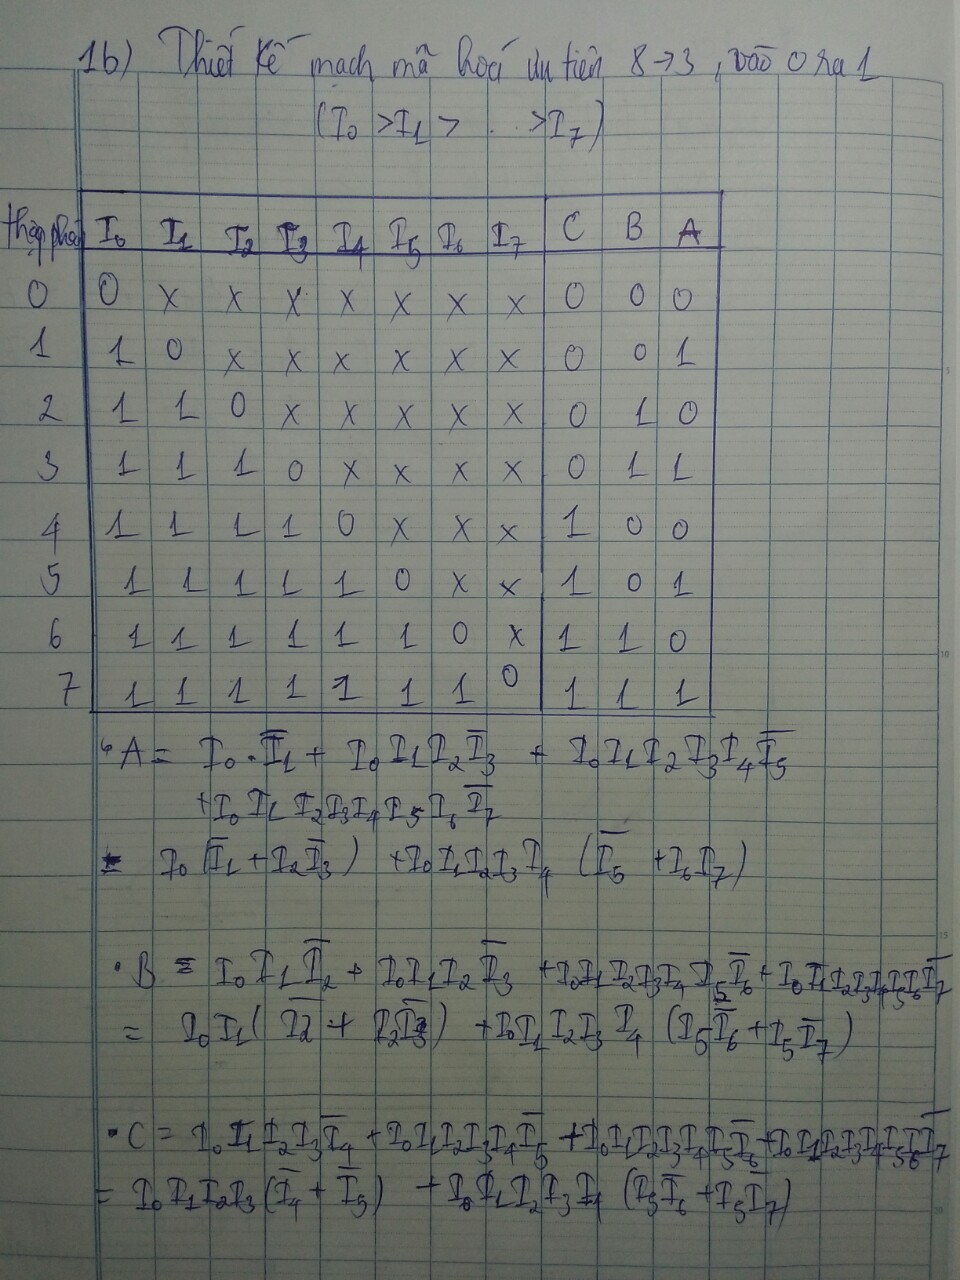 1b) Thiết kế mạch mã hoá ưu tiên 8→3, vào 0 ra 1
(I₀ > I₁ > . . . > I₇)
thập phân I₀ I₁ I₂ I₃ I₄ I₅ I₆ I₇ C B A
0 0 x x x x x x x 0 0 0
1 1 0 x x x x x x 0 0 1
2 1 1 0 x x x x x 0 1 0
3 1 1 1 0 x x x x 0 1 1
4 1 1 1 1 0 x x x 1 0 0
5 1 1 1 1 1 0 x x 1 0 1
6 1 1 1 1 1 1 0 x 1 1 0
7 1 1 1 1 1 1 1 0 1 1 1
A = I₀.I̅₁ + I₀I₁I₂I̅₃ + I₀I₁I₂I₃I₄I̅₅
+ I₀I₁I₂I₃I₄I₅I₆I̅₇
= I₀(I̅₁ + I₂I̅₃) + I₀I₁I₂I₃I₄(I̅₅ + I₆I₇)
• B = I₀I₁I̅₂ + I₀I₁I₂I̅₃ + I₀I₁I₂I₃I₄I₅I̅₆ + I₀I₁I₂I₃I₄I₅I₆I̅₇
= I₀I₁(I̅₂ + I₂I̅₃) + I₀I₁I₂I₃I₄(I₅I̅₆ + I₅I̅₇)
• C = I₀I₁I₂I₃I̅₄ + I₀I₁I₂I₃I₄I̅₅ + I₀I₁I₂I₃I₄I₅I̅₆ + I₀I₁I₂I₃I₄I₅I₆I̅₇
= I₀I₁I₂I₃(I̅₄ + I̅₅) + I₀I₁I₂I₃I₄(I₅I̅₆ + I₅I̅₇)